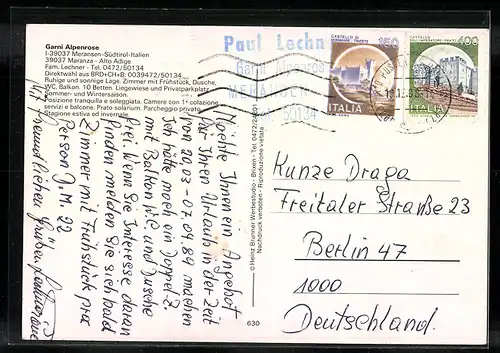 Garni Alpenrose
I-39037 Meransen-Südtirol-Italien
39037 Maranza - Alto Adige
Fam. Lechner - Tel. 0472/50134
Direktwahl aus BRD+CH+B: 0039472/50134
Ruhige und sonnige Lage. Zimmer mit Frühstück, Dusche,
WC, Balkon. 10 Betten. Liegewiese und Privatparkplatz.
Sommer- und Wintersaison.
Posizione tranquilla e soleggiata. Camere con 1ª colazione
servizi e balcone. Prato solarium. Parcheggio privato.
Stagione estiva ed invernale.
Paul Lechn
Garni Alpenrose
50134
CASTELLO DI
150
ITALIA
CASTELLO
DELL'IMPERATORE - PRATO
400
ITALIA
Möchte Ihnen ein Angebot
für Ihren Urlaub in der Zeit
von 20.03 - 07.09.89 machen
Ich hätte noch ein Doppel Z.
mit Balkon WC und Dusche
frei. Wenn Sie Interesse daran
finden melden Sie sich bald
Zimmer mit Frühstück pra
Person D.M. 22
Mit freundlichen Grüßen
© Heinz Brunner Werbestudio - Brixen - Tel. 0472/24201
Nachdruck verboten - Riproduzione vietata
630
Kunze Draga
Freitaler Straße 23
Berlin 47
1000
Deutschland.